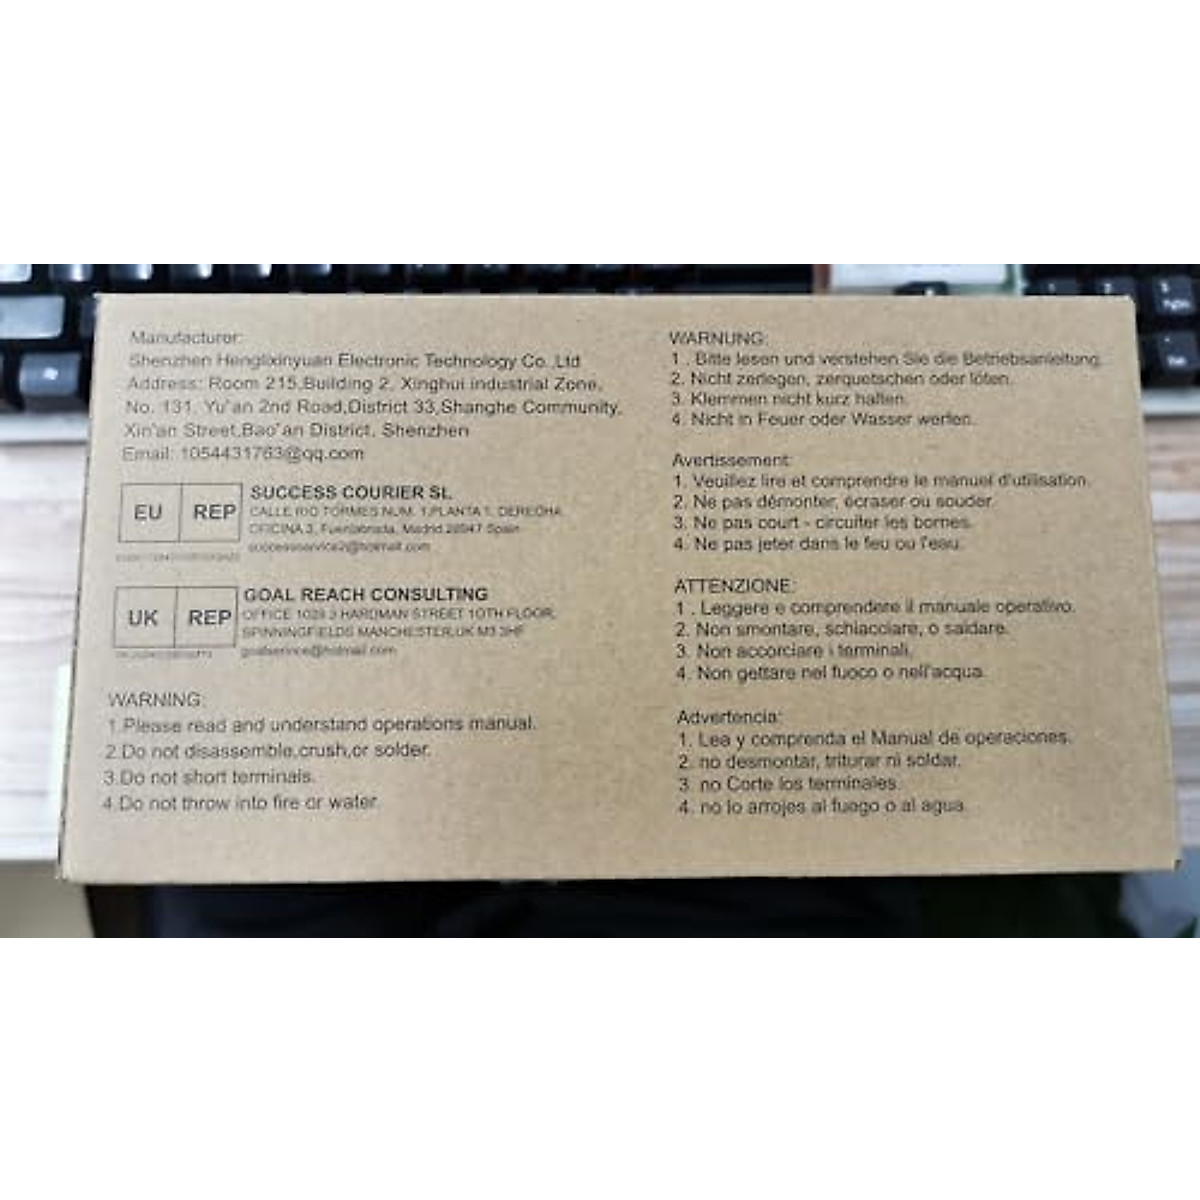 Manufacturer:
Shenzhen Henglixinyuan Electronic Technology Co.,Ltd
Address: Room 215,Building 2, Xinghui industrial Zone,
No. 131, Yu'an 2nd Road,District 33,Shanghe Community,
Xin'an Street,Bao'an District, Shenzhen
Email: 1054431763@qq.com
EU REP
SUCCESS COURIER SL
CALLE RIO TORMES NUM. 1,PLANTA 1, DERECHA,
OFICINA 3, Fuenlabrada, Madrid 28947 Spain
successservice2@hotmail.com
UK REP
GOAL REACH CONSULTING
OFFICE 1029 3 HARDMAN STREET 10TH FLOOR,
SPINNINGFIELDS MANCHESTER,UK M3 3HF
goalservice@hotmail.com
WARNING:
1.Please read and understand operations manual.
2.Do not disassemble,crush,or solder.
3.Do not short terminals.
4.Do not throw into fire or water.
WARNUNG:
1 . Bitte lesen und verstehen Sie die Betriebsanleitung.
2. Nicht zerlegen, zerquetschen oder löten.
3. Klemmen nicht kurz halten.
4. Nicht in Feuer oder Wasser werfen.
Avertissement:
1. Veuillez lire et comprendre le manuel d'utilisation.
2. Ne pas démonter, écraser ou souder.
3. Ne pas court - circuiter les bornes.
4. Ne pas jeter dans le feu ou l'eau.
ATTENZIONE:
1 . Leggere e comprendere il manuale operativo.
2. Non smontare, schiacciare, o saldare.
3. Non accorciare i terminali.
4. Non gettare nel fuoco o nell'acqua.
Advertencia:
1. Lea y comprenda el Manual de operaciones.
2. no desmontar, triturar ni soldar.
3. no Corte los terminales.
4. no lo arrojes al fuego o al agua.